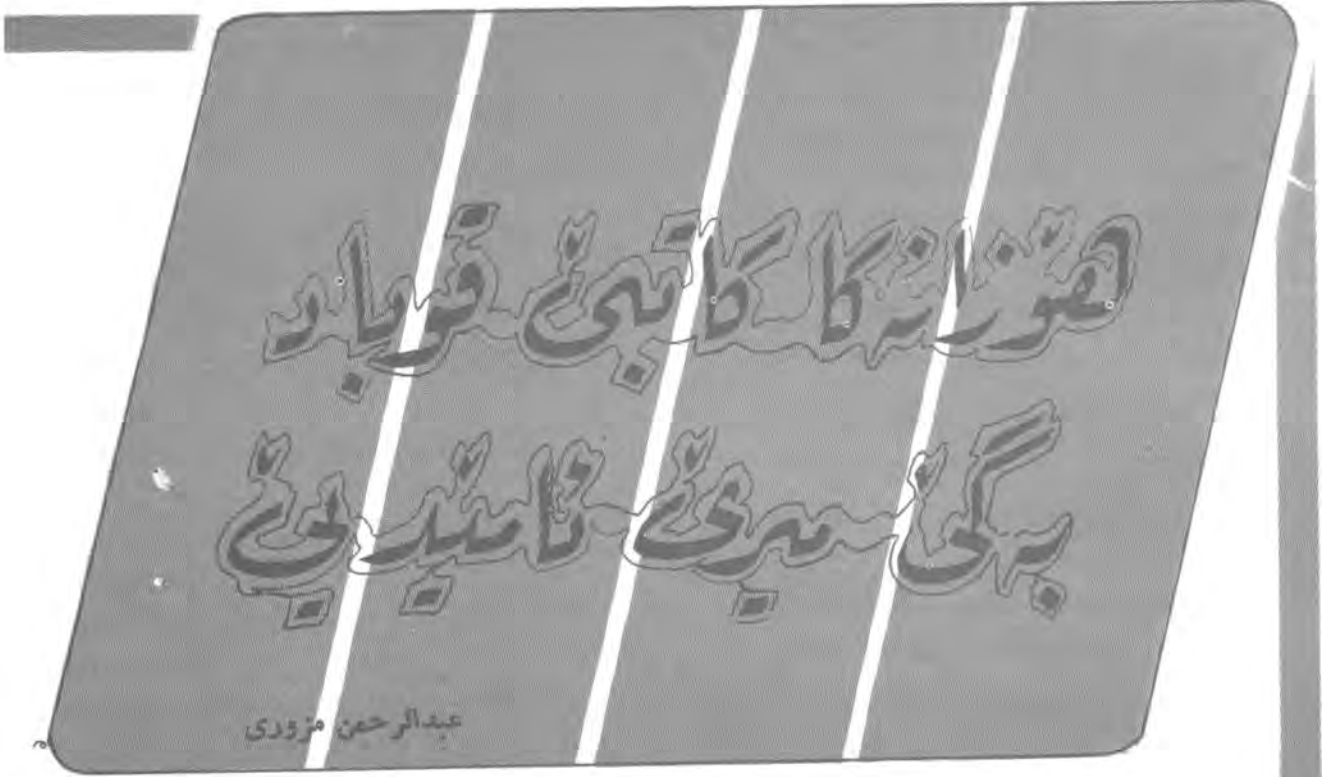 هۆزانەکا کاتبێ قوباد
بەگێ میرێ ئامێدیێ
عبدالرحمن مزوری